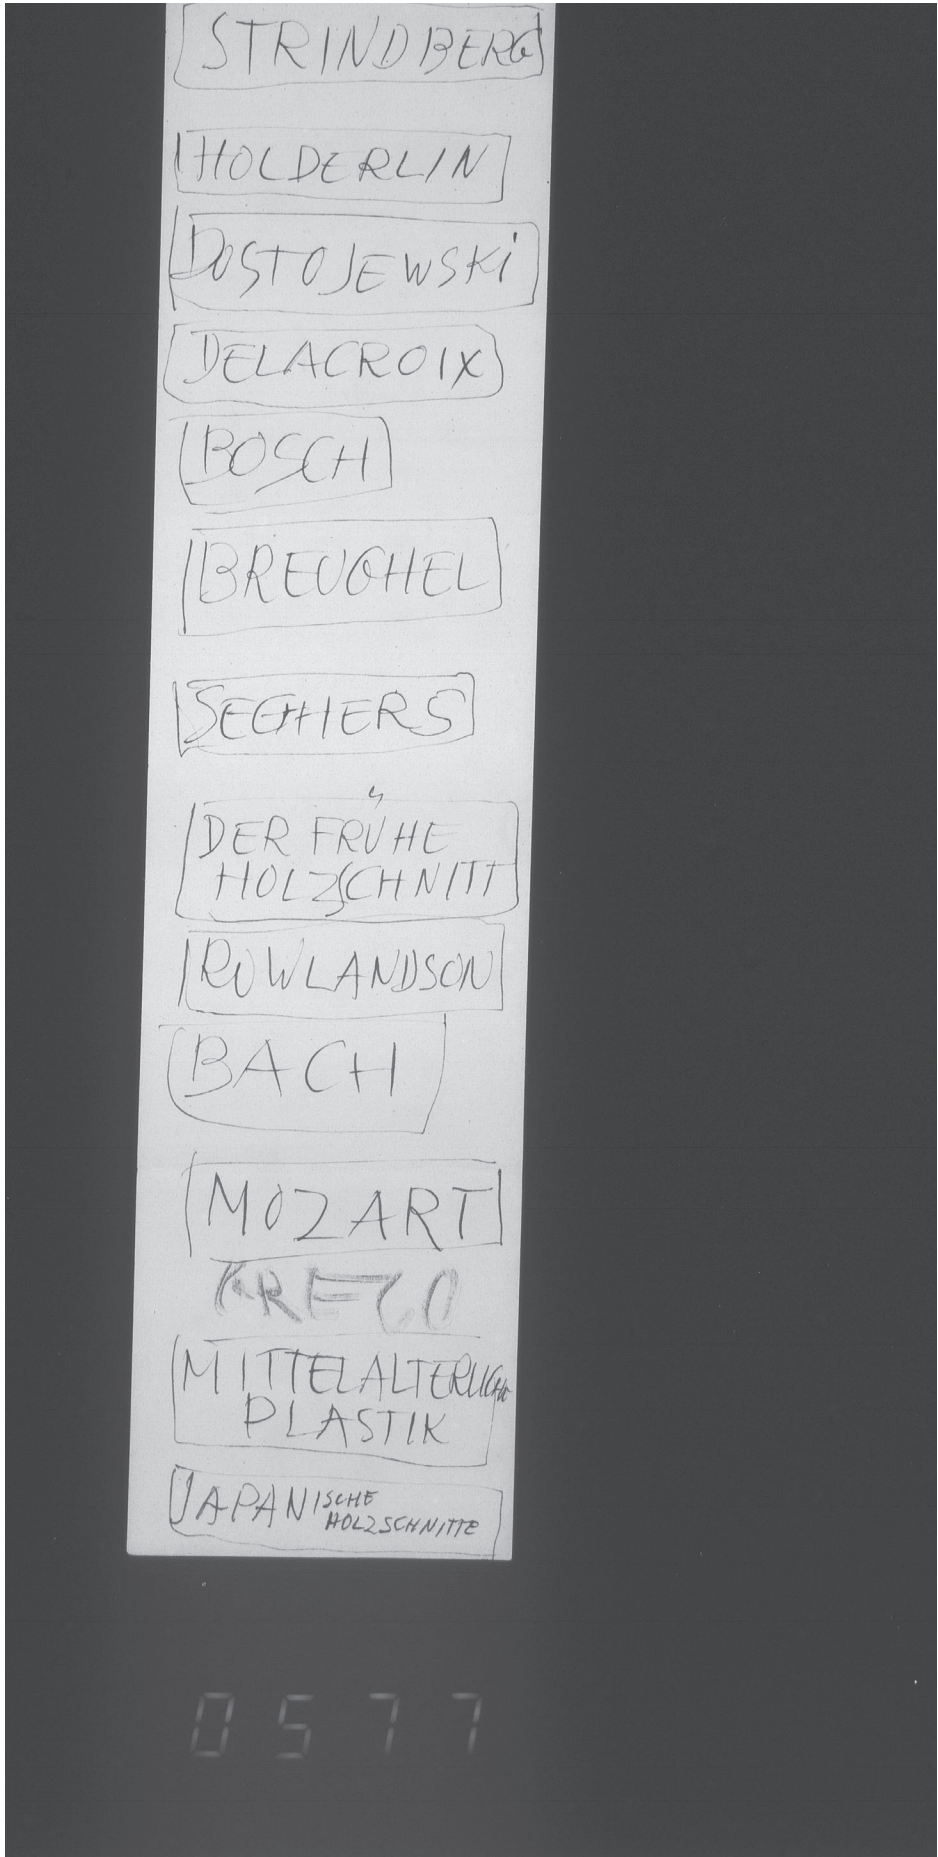 STRINDBERG
HOLDERLIN
DOSTOJEWSKi
DELACROIX
BOSCH
BREUGHEL
SEGHERS
DER FRÜHE
HOLZSCHNITT
ROWLANDSON
BACH
MOZART
MITTELALTERLICHE
PLASTIK
JAPANISCHE
HOLZSCHNITTE
0577